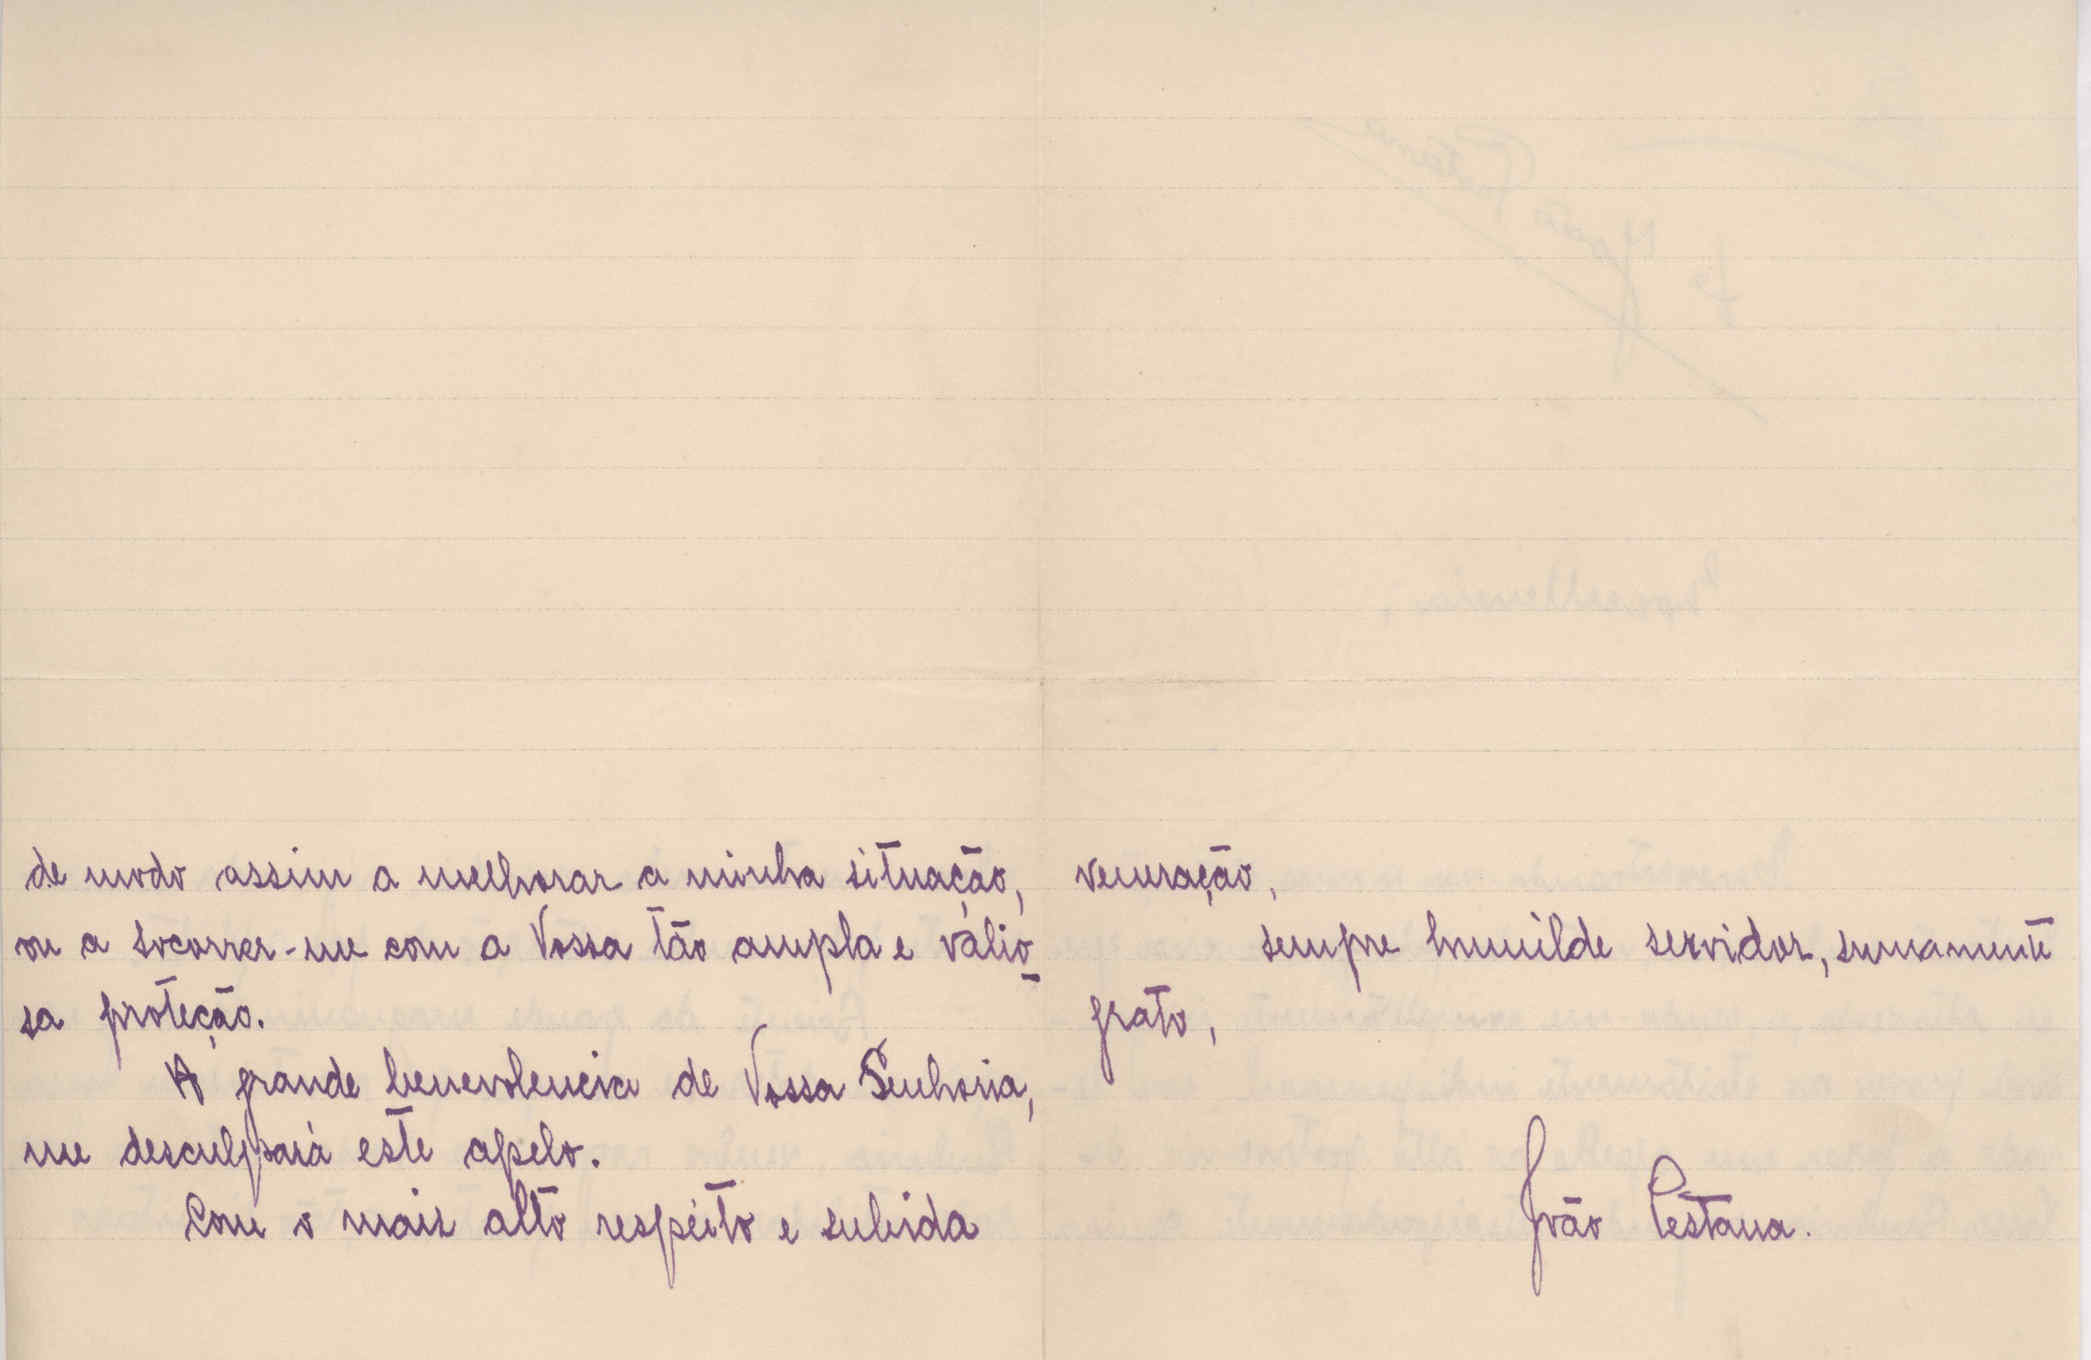 de modo assim a melhorar a minha situação,
ou a socorrer-me com a Vossa tão ampla e válio-
sa proteção.
A grande benevolencia de Vossa Senhoria,
me desculpará este apelo.
Com o mais alto respeito e subida
veneração,
sempre humilde servidor, sumamente
grato,
João Pestana.